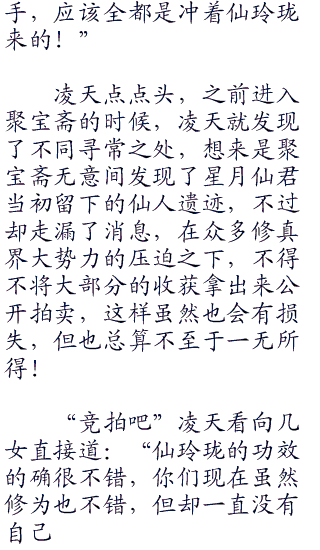 手，应该全都是冲着仙玲珑
来的！”
凌天点点头，之前进入
聚宝斋的时候，凌天就发现
了不同寻常之处，想来是聚
宝斋无意间发现了星月仙君
当初留下的仙人遗迹，不过
却走漏了消息，在众多修真
界大势力的压迫之下，不得
不将大部分的收获拿出来公
开拍卖，这样虽然也会有损
失，但也总算不至于一无所
得！
“竞拍吧”凌天看向几
女直接道：“仙玲珑的功效
的确很不错，你们现在虽然
修为也不错，但却一直没有
自己